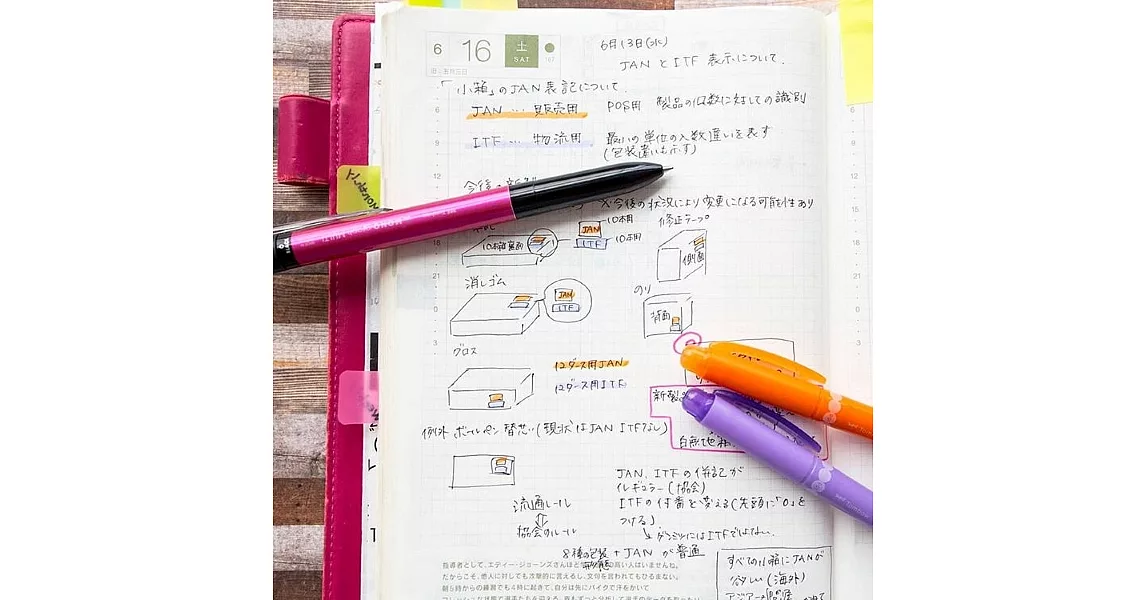 6 16 土 SAT
6月13日(水)
JANとITF 表示について.
「小箱」のJAN表記について.
JAN … 販売用 POS用 製品の個数に対しての識別
ITF … 物流用 最小の単位の入数違いを表す
(包装違いも示す)
今後の新製
※今後の状況により変更になる可能性あり
修正テープ
JAN 10本用
ITF 10本用
側面
消しゴム
JAN
ITF
のり
背面
グロス
12ダース用JAN
12ダース用ITF
新製
例外 ボールペン替芯(現状はJAN ITFなし)
JAN、ITFの併記が
イレギュラー(協会)
ITFの付番を変える(先頭に「0」を
つける)
流通ルール
協会のルール
→ ITFではない.
8種の包装 + JANが普通
すべての小箱にJANが
欲しい(海外)
指導者として、エディー・ジョーンズさんほど
高い人はいませんね。
だからこそ、他人に対しても攻撃的に言えるし、文句を言われてもひるまない。
朝5時からの練習でも4時に起きて、自分は先にバイクで汗をかいて